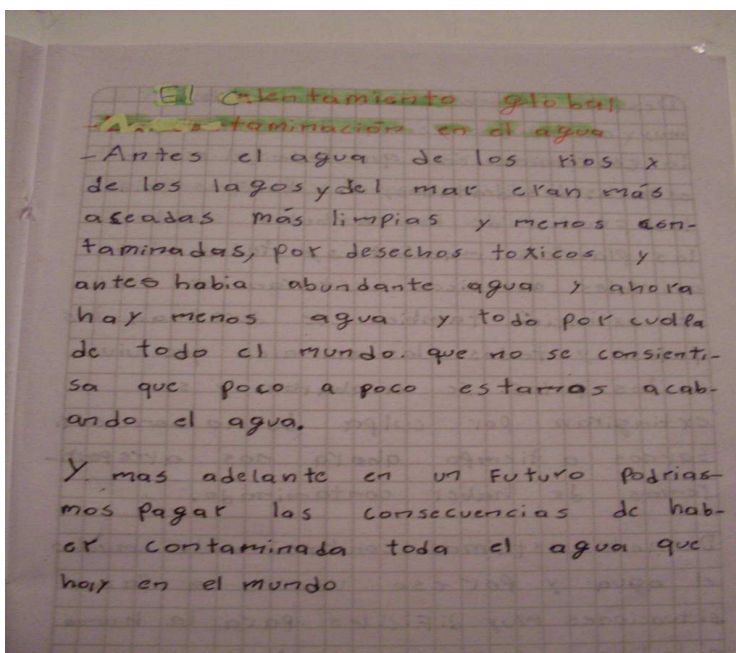 El calentamiento global
taminación en el agua
- Antes el agua de los rios y
de los lagos y del mar eran más
aseadas más limpias y menos con-
taminadas, por desechos toxicos y
antes habia abundante agua y ahora
hay menos agua y todo por culpa
de todo el mundo. que no se consienti-
sa que poco a poco estamos acab-
ando el agua.
Y mas adelante en un Futuro Podrias-
mos Pagar las consecuencias de hab-
er contaminada toda el agua que
hay en el mundo